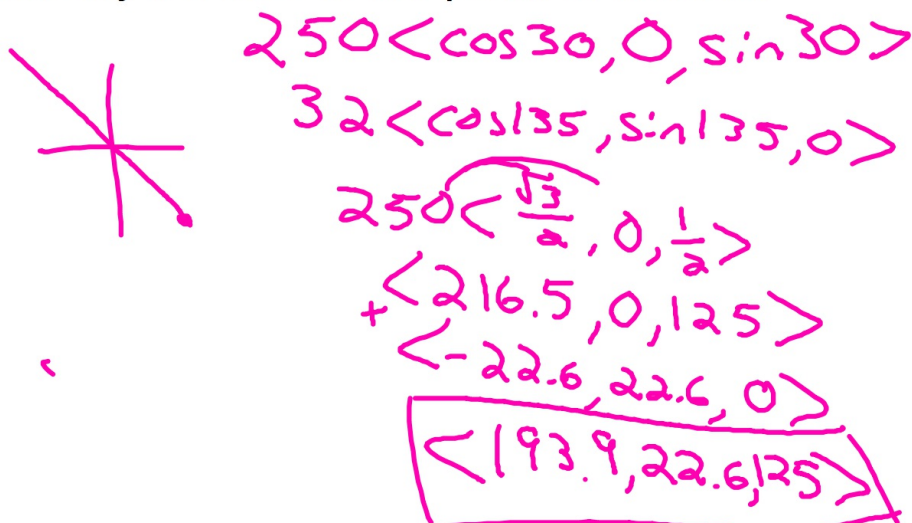 250<cos30, 0, sin30>
32<cos135, sin135, 0>
250<√3/2, 0, 1/2>
+<216.5, 0, 125>
<-22.6, 22.6, 0>
<193.9, 22.6, 125>